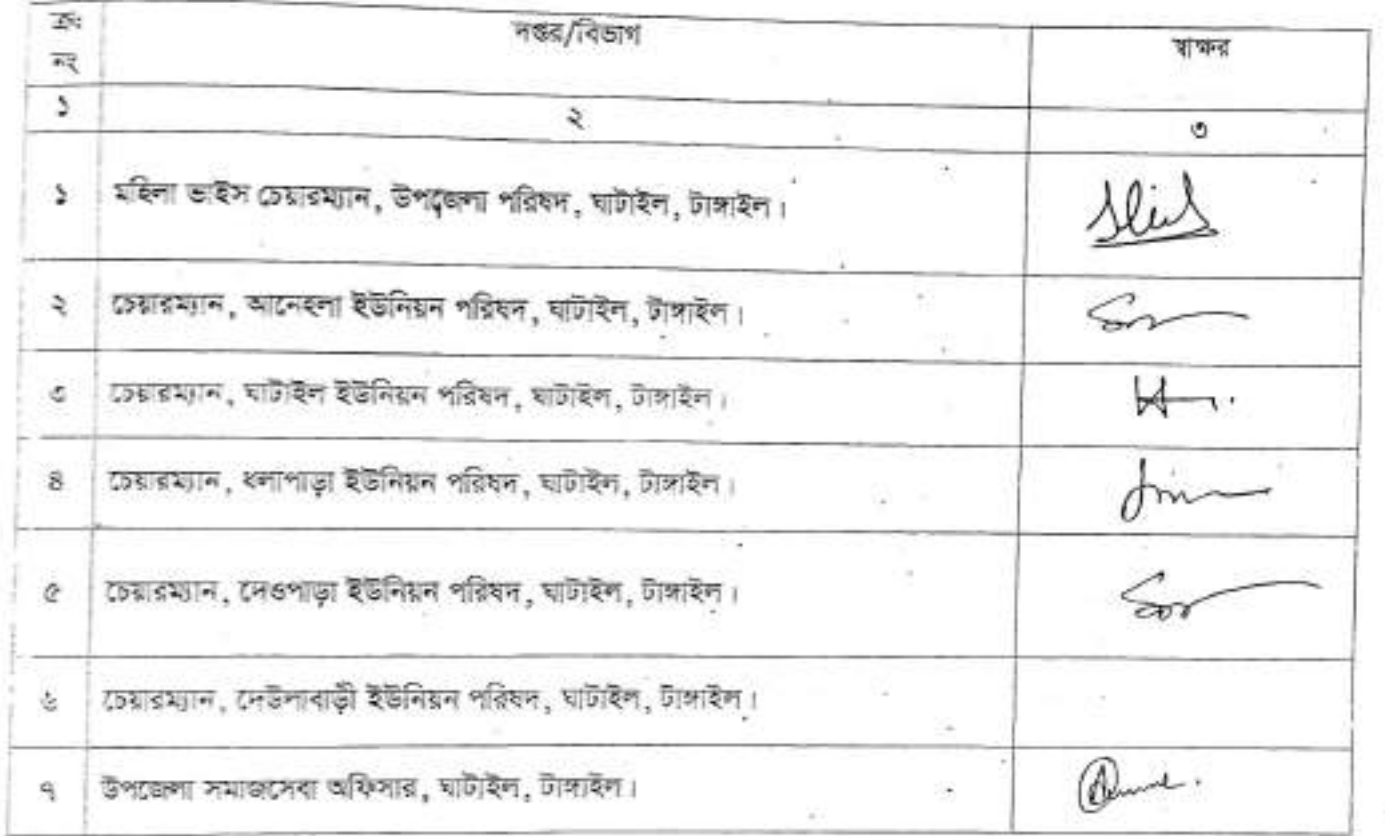 ক্রঃ নং দপ্তর/বিভাগ স্বাক্ষর
১ ২ ৩
১ মহিলা ভাইস চেয়ারম্যান, উপজেলা পরিষদ, ঘাটাইল, টাঙ্গাইল।
২ চেয়ারম্যান, আনেহলা ইউনিয়ন পরিষদ, ঘাটাইল, টাঙ্গাইল।
৩ চেয়ারম্যান, ঘাটাইল ইউনিয়ন পরিষদ, ঘাটাইল, টাঙ্গাইল।
৪ চেয়ারম্যান, ধলাপাড়া ইউনিয়ন পরিষদ, ঘাটাইল, টাঙ্গাইল।
৫ চেয়ারম্যান, দেওপাড়া ইউনিয়ন পরিষদ, ঘাটাইল, টাঙ্গাইল।
৬ চেয়ারম্যান, দেউলাবাড়ী ইউনিয়ন পরিষদ, ঘাটাইল, টাঙ্গাইল।
৭ উপজেলা সমাজসেবা অফিসার, ঘাটাইল, টাঙ্গাইল।